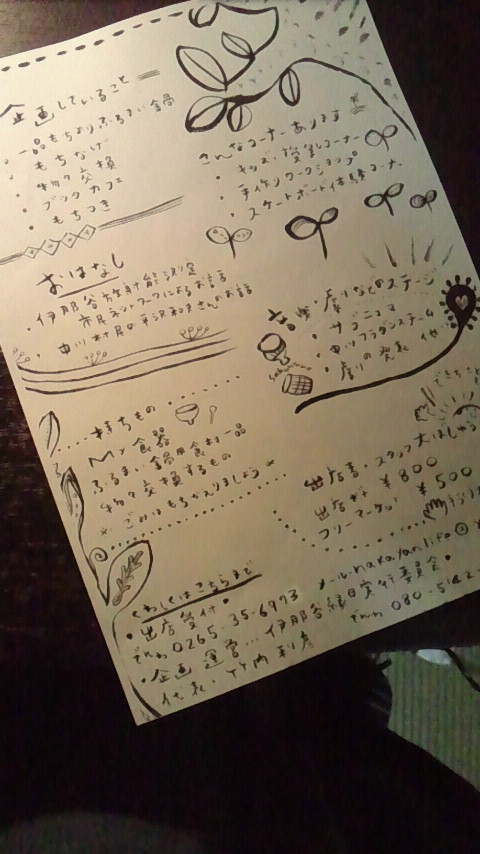 企画していること
・一品もちよりふるまい鍋
・もちなげ
・物々交換
・ブックカフェ
・もちつき
こんなコーナーあります
・キッズ・授乳コーナー
・手作りワークショップ
・スケートボード体験コーナー
おはなし
・伊那谷放射能測定
市民ネットワークによるお話
・中川村民の平沢和夫さんのお話
音楽・踊りなどのステージ
・サブニュマ
・中川フラダンスチーム
・踊りの発表 他
持ちもの
My食器
ふるまい鍋用食材一品
物々交換するもの
※ごみはもちかえりましょう
できること
出店者・スタッフ大ぼしゅう
出店料 ¥800
フリーマーケット ¥500
くわしくはこちらまで
・出店受付・
でんわ 0265-35-6973
メール:nakayanlife@
・企画 運営…伊那谷縁日実行委員会・
代表・竹内
でんわ 080-5142-